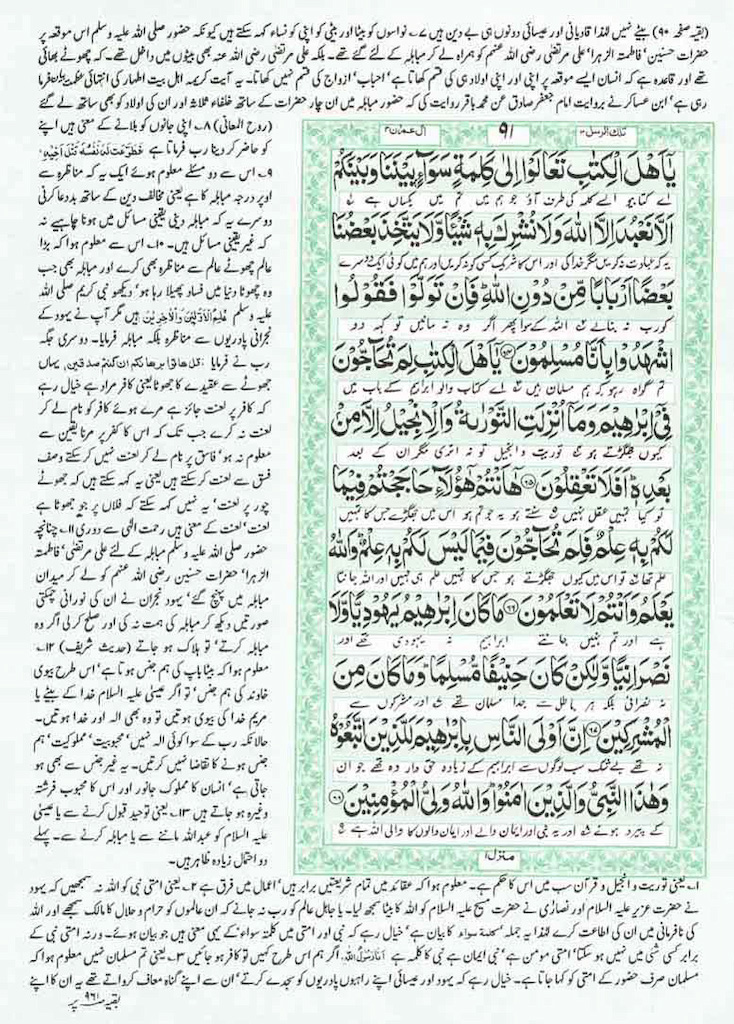 (بقیہ صفحہ ۹۰) بیٹے نہیں لہٰذا قادیانی اور عیسائی دونوں ہی بے دین ہیں ۷۔ نواسوں کو بیٹا اور بیٹی کو اپنی کو نساء کہہ سکتے ہیں کیونکہ حضور صلی اللہ علیہ وسلم اس موقعہ پر
حضرات حسنین' فاطمتہ الزہرا' علی مرتضیٰ رضی اللہ عنہم کو ہمراہ لے کر مباہلہ کے لئے گئے تھے۔ بلکہ علی مرتضیٰ رضی اللہ عنہ بھی بیٹوں میں داخل تھے۔ کہ چھوٹے بھائی
تھے اور قاعدہ ہے کہ انسان ایسے موقعہ پر اپنی اور اپنی اولاد ہی کی قسم کھاتا ہے' احباب' ازواج کی قسم نہیں کھاتا۔ یہ آیت کریمہ اہل بیت اطہار کی انتہائی عظمت بیان فرما
رہی ہے' ابن عساکر نے بروایت امام جعفر صادق عن محمد باقر روایت کی کہ حضور مباہلہ میں ان چار حضرات کے ساتھ خلفاء ثلاثہ اور ان کی اولاد کو بھی ساتھ لے گئے
(روح المعانی) ۸۔ اپنی جانوں کو بلانے کے معنی ہیں اپنے
کو حاضر کر دینا رب فرماتا ہے فَطَوَّعَتْ لَهٗ نَفْسُهٗ قَتْلَ اَخِيْهِ
۹۔ اس سے دو مسئلے معلوم ہوئے ایک یہ کہ مناظرہ سے
اوپر درجہ مباہلہ کا ہے یعنی مخالف دین کے ساتھ بددعا کرنی
دوسرے یہ کہ مباہلہ دینی یقینی مسائل میں ہونا چاہیے نہ
کہ غیر یقینی مسائل میں۔ ۱۰۔ اس سے معلوم ہوا کہ بڑا
عالم چھوٹے عالم سے مناظرہ بھی کرے اور مباہلہ بھی جب
وہ چھوٹا دنیا میں فساد پھیلا رہا ہو' دیکھو نبی کریم صلی اللہ
علیہ وسلم عَلِمَ الْاَوَّلِيْنَ وَالْاٰخِرِيْنَ ہیں مگر آپ نے یہود کے
نجرانی پادریوں سے مناظرہ بلکہ مباہلہ فرمایا۔ دوسری جگہ
رب نے فرمایا قل هاتوا برهانكم ان كنتم صدقين یہاں
جھوٹے سے عقیدے کا جھوٹا یعنی کافر مراد ہے خیال رہے
کہ کافر پر لعنت جائز ہے مرے ہوئے کافر کو نام لے کر
لعنت نہ کرے جب تک کہ اس کا کفر پر مرنا یقین سے
معلوم نہ ہو' فاسق پر نام لے کر لعنت نہیں کر سکتے وصف
فسق سے لعنت کر سکتے ہیں یعنی یہ کہہ سکتے ہیں کہ جھوٹے
چور پر لعنت' یہ نہیں کہہ سکتے کہ فلاں پر جو جھوٹا ہے
لعنت' لعنت کے معنی ہیں رحمت الٰہی سے دوری ۱۱۔ چنانچہ
حضور صلی اللہ علیہ وسلم مباہلہ کے لئے علی مرتضیٰ' فاطمتہ
الزہرا' حضرات حسنین رضی اللہ عنہم کو لے کر میدان
مباہلہ میں پہنچ گئے' یہود نجران نے ان کی نورانی چمکتی
صورتیں دیکھ کر مباہلہ کی ہمت نہ کی اور صلح کر لی اگر وہ
مباہلہ کرتے' تو ہلاک ہو جاتے (حدیث شریف) ۱۲۔
معلوم ہوا کہ بیٹا باپ کی ہم جنس ہوتا ہے' اس طرح بیوی
خاوند کی ہم جنس' تو اگر عیسیٰ علیہ السلام خدا کے بیٹے یا
مریم خدا کی بیوی ہوتیں تو وہ بھی الہ اور خدا ہوتیں۔
حالانکہ رب کے سوا کوئی الہ نہیں' محبوبیت' مملوکیت' ہم
جنس ہونے کا تقاضا نہیں کرتیں۔ یہ غیر جنس سے بھی ہو
جاتی ہے' انسان کا مملوک جانور اور اس کا محبوب فرشتہ
وغیرہ ہو جاتے ہیں ۱۳۔ یعنی توحید قبول کرنے سے یا عیسیٰ
علیہ السلام کو عبداللہ ماننے سے یا مباہلہ کرنے سے۔ پہلے
دو احتمال زیادہ ظاہر ہیں۔
تلك الرسل ۳ ۹۱ اٰل عمران ۳
يٰۤاَهْلَ الْكِتٰبِ تَعَالَوْا اِلٰى كَلِمَةٍ سَوَآءٍۢ بَيْنَنَا وَبَيْنَكُمْ
اے کتابیو ایسے کلمہ کی طرف آؤ جو ہم میں تم میں یکساں ہے
اَلَّا نَعْبُدَ اِلَّا اللّٰهَ وَلَا نُشْرِكَ بِهٖ شَيْـًٔا وَّلَا يَتَّخِذَ بَعْضُنَا
یہ کہ عبادت نہ کریں مگر خدا کی اور اس کا شریک کسی کو نہ کریں اور ہم میں کوئی ایک دوسرے
بَعْضًا اَرْبَابًا مِّنْ دُوْنِ اللّٰهِ ؕ فَاِنْ تَوَلَّوْا فَقُوْلُوا
کو رب نہ بنالے اللہ کے سوا پھر اگر وہ نہ مانیں تو کہہ دو
اشْهَدُوْا بِاَنَّا مُسْلِمُوْنَ ﴿۶۴﴾ يٰۤاَهْلَ الْكِتٰبِ لِمَ تُحَآجُّوْنَ
تم گواہ رہو کہ ہم مسلمان ہیں اے کتاب والو ابراہیم کے باب میں
فِیْۤ اِبْرٰهِيْمَ وَمَاۤ اُنْزِلَتِ التَّوْرٰىةُ وَالْاِنْجِيْلُ اِلَّا مِنْۢ
کیوں جھگڑتے ہو توریت و انجیل تو نہ اتری مگر ان کے بعد
بَعْدِهٖ ؕ اَفَلَا تَعْقِلُوْنَ ﴿۶۵﴾ هٰۤاَنْتُمْ هٰۤؤُلَآءِ حَاجَجْتُمْ فِيْمَا
تو کیا تمہیں عقل نہیں سنتے ہو یہ جو تم ہو اس میں جھگڑے جس کا تمہیں
لَكُمْ بِهٖ عِلْمٌ فَلِمَ تُحَآجُّوْنَ فِيْمَا لَيْسَ لَكُمْ بِهٖ عِلْمٌ ؕ وَاللّٰهُ
علم تھا تو اس میں کیوں جھگڑتے ہو جس کا تمہیں علم ہی نہیں اور اللہ جانتا
يَعْلَمُ وَاَنْتُمْ لَا تَعْلَمُوْنَ ﴿۶۶﴾ مَا كَانَ اِبْرٰهِيْمُ يَهُوْدِيًّا وَّلَا
ہے اور تم نہیں جانتے ابراہیم نہ یہودی تھے اور
نَصْرَانِيًّا وَّلٰكِنْ كَانَ حَنِيْفًا مُّسْلِمًا ؕ وَمَا كَانَ مِنَ
نہ نصرانی بلکہ ہر باطل سے جدا مسلمان تھے اور مشرکوں سے
الْمُشْرِكِيْنَ ﴿۶۷﴾ اِنَّ اَوْلَى النَّاسِ بِاِبْرٰهِيْمَ لَلَّذِيْنَ اتَّبَعُوْهُ
نہ تھے بے شک سب لوگوں سے ابراہیم کے زیادہ حق دار وہ تھے جو ان
وَهٰذَا النَّبِیُّ وَالَّذِيْنَ اٰمَنُوْا ؕ وَاللّٰهُ وَلِیُّ الْمُؤْمِنِيْنَ ﴿۶۸﴾
کے پیرو ہوئے اور یہ نبی اور ایمان والے اور ایمان والوں کا والی اللہ ہے
منزل ۱
۱۔ یعنی توریت و انجیل و قرآن سب میں اس کا حکم ہے۔ معلوم ہوا کہ عقائد میں تمام شریعتیں برابر ہیں' اعمال میں فرق ہے ۲۔ یعنی امتی نبی کو اللہ نہ سمجھیں کہ یہود
نے حضرت عزیر علیہ السلام اور نصاریٰ نے حضرت مسیح علیہ السلام کو اللہ کا بیٹا سمجھ لیا۔ یا جاہل عالم کو رب نہ جانے کہ ان عالموں کو حرام و حلال کا مالک سمجھے اور اللہ
کی نافرمانی میں ان کی اطاعت کرے لہٰذا یہ جملہ کلمۃ سواء کا بیان ہے' خیال رہے کہ نبی اور امتی میں کلمتہ سواء' کے یہی معنی ہیں جو بیان ہوئے۔ ورنہ امتی نبی کے
برابر کسی شی میں نہیں ہو سکتا' امتی مومن ہے' نبی ایمان ہے نبی کا کلمہ ہے اَنَا رَسُوْلُ اللّٰهِ اگر ہم اس طرح کہیں تو کافر ہو جائیں ۳۔ یعنی تم مسلمان نہیں معلوم ہوا کہ
مسلمان صرف حضور کے امتی کو کہا جاتا ہے۔ خیال رہے کہ یہود اور عیسائی اپنے راہبوں پادریوں کو سجدے کرتے' ان سے اپنے گناہ معاف کرواتے تھے یہ ان کا اپنے
بقیہ صفحہ ۹۶۱ پر